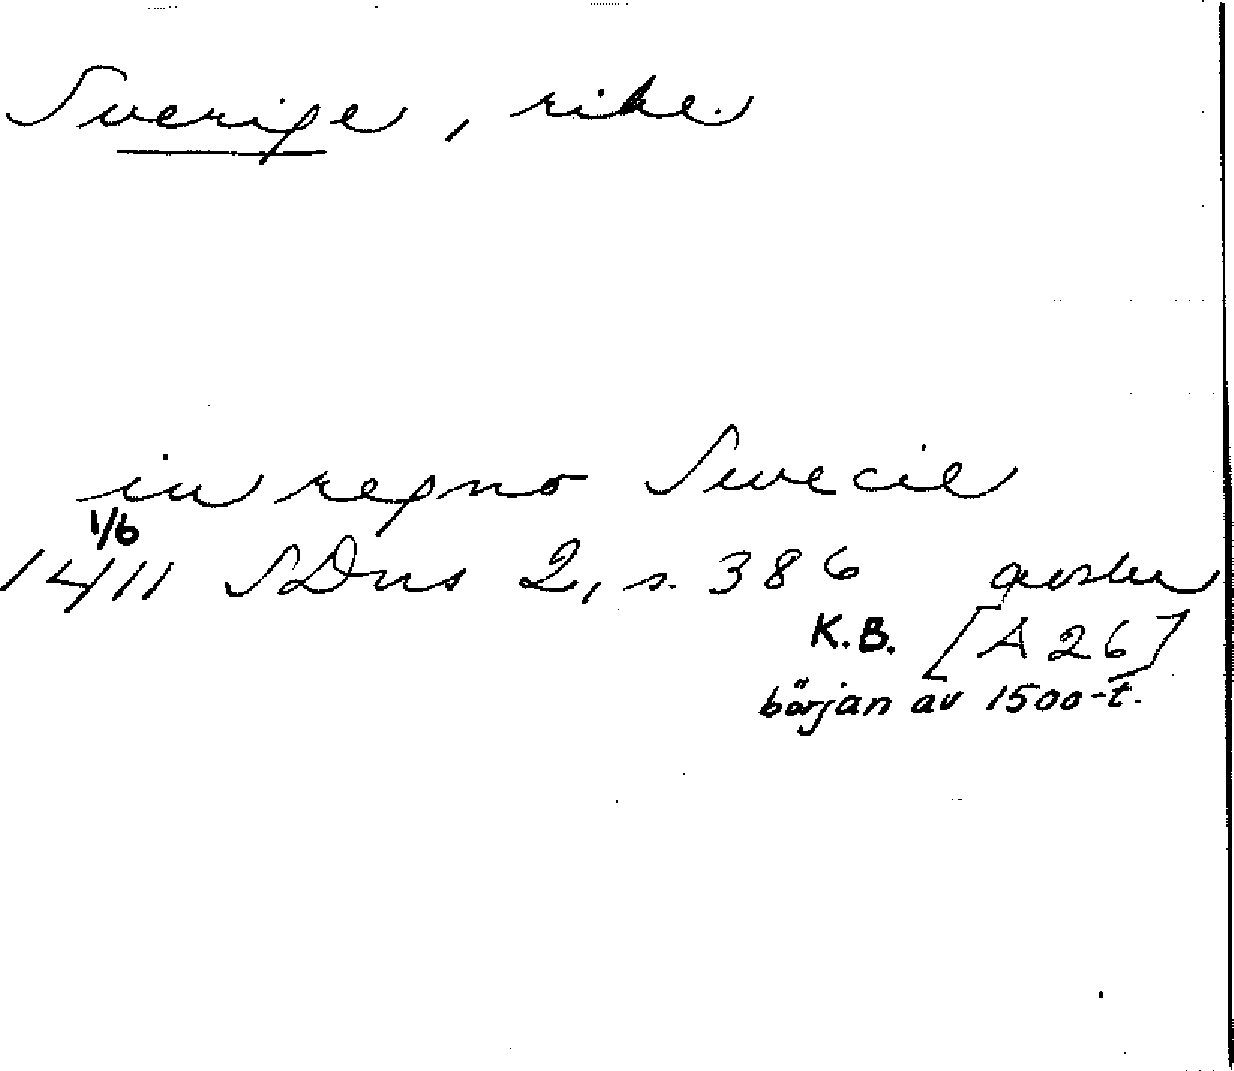 Sverige, rike.
in regno Swecie
1/6
1411 SDns 2, s. 386 avskr
K.B. [A 26]
början av 1500-t.